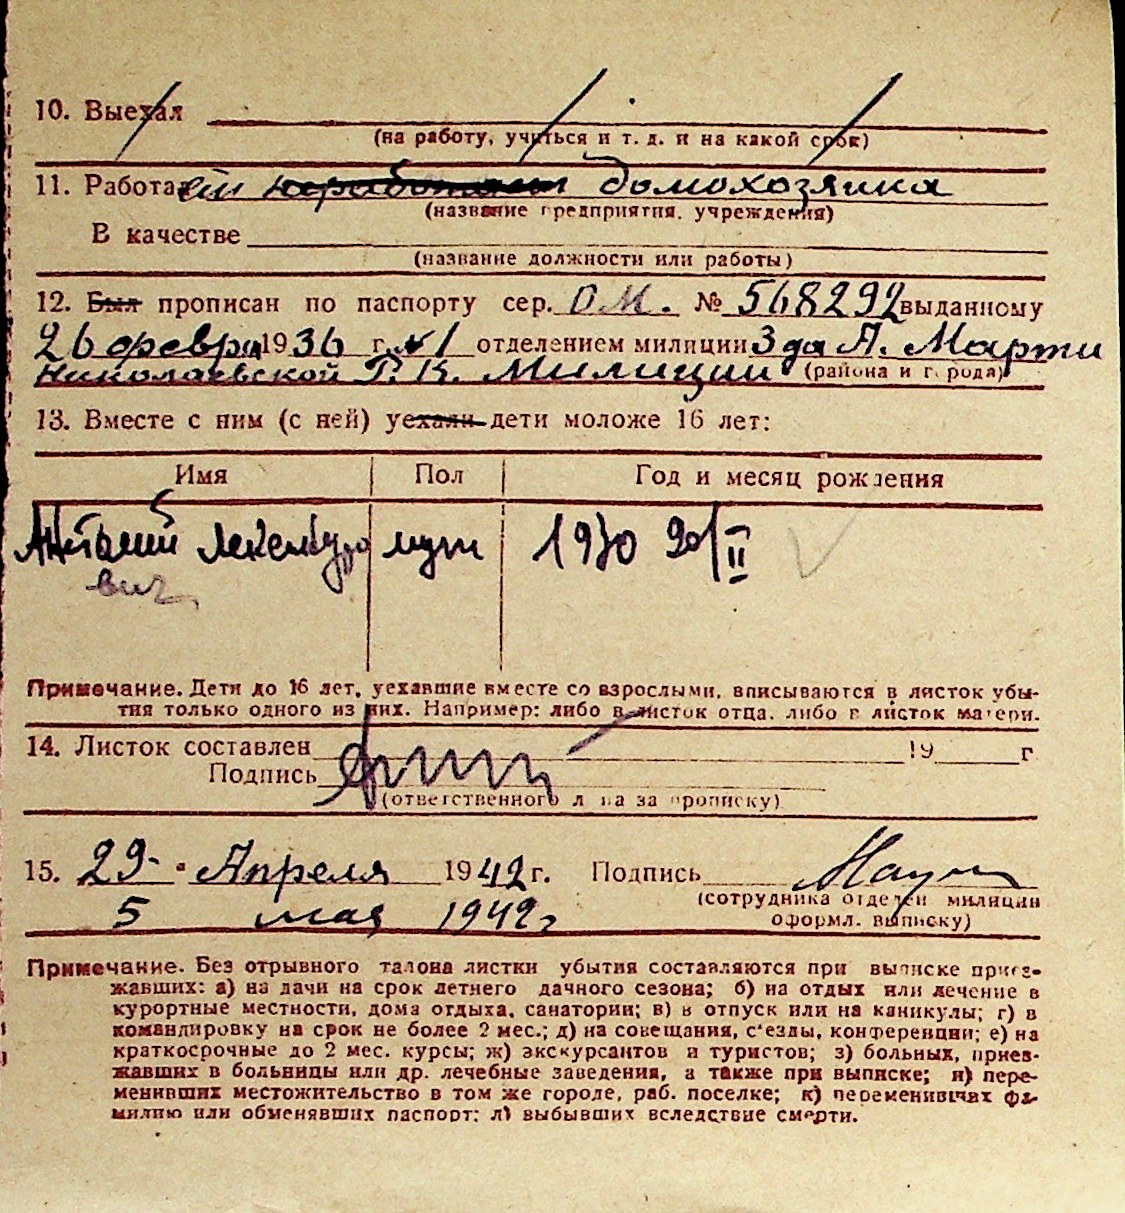 10. Выехал
(на работу, учиться и т. д. и на какой срок)
11. Работает неработает домохозяйка
(название предприятия, учреждения)
В качестве
(название должности или работы)
12. Был прописан по паспорту сер. О.М. № 568292 выданному
26 февр 1936 г. №1 отделением милиции з-да А. Марти
Николаевской Р. К. Милиции (района и города)
13. Вместе с ним (с ней) уехали дети моложе 16 лет:
Имя Пол Год и месяц рождения
муж 1930 20/II
вич
Примечание. Дети до 16 лет, уехавшие вместе со взрослыми, вписываются в листок убы-
тия только одного из них. Например: либо в листок отца, либо в листок матери.
14. Листок составлен 19 г.
Подпись
(ответственного лица за прописку)
15. 29 Апреля 1942 г. Подпись
(сотрудника отделен милиции
5 мая 1942 г
оформл. выписку)
Примечание. Без отрывного талона листки убытия составляются при выписке приез-
жавших: а) на дачи на срок летнего дачного сезона; б) на отдых или лечение в
курортные местности, дома отдыха, санатории; в) в отпуск или на каникулы; г) в
командировку на срок не более 2 мес.; д) на совещания, с'езды, конференции; е) на
краткосрочные до 2 мес. курсы; ж) экскурсантов и туристов; з) больных, приез-
жавших в больницы или др. лечебные заведения, а также при выписке; и) пере-
менивших местожительство в том же городе, раб. поселке; к) переменивших фа-
милию или обменявших паспорт; л) выбывших вследствие смерти.